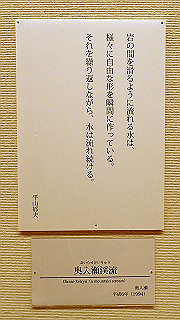 岩の間を滑るように流れる水は、
様々に自由な形を瞬間に作っている。
それを繰り返しながら、水は流れ続ける。
平山郁夫
おいらせけいりゅう
奥入瀬渓流
Oirase Keiryū (a mountain stream)
奥入瀬
平成6年（1994）